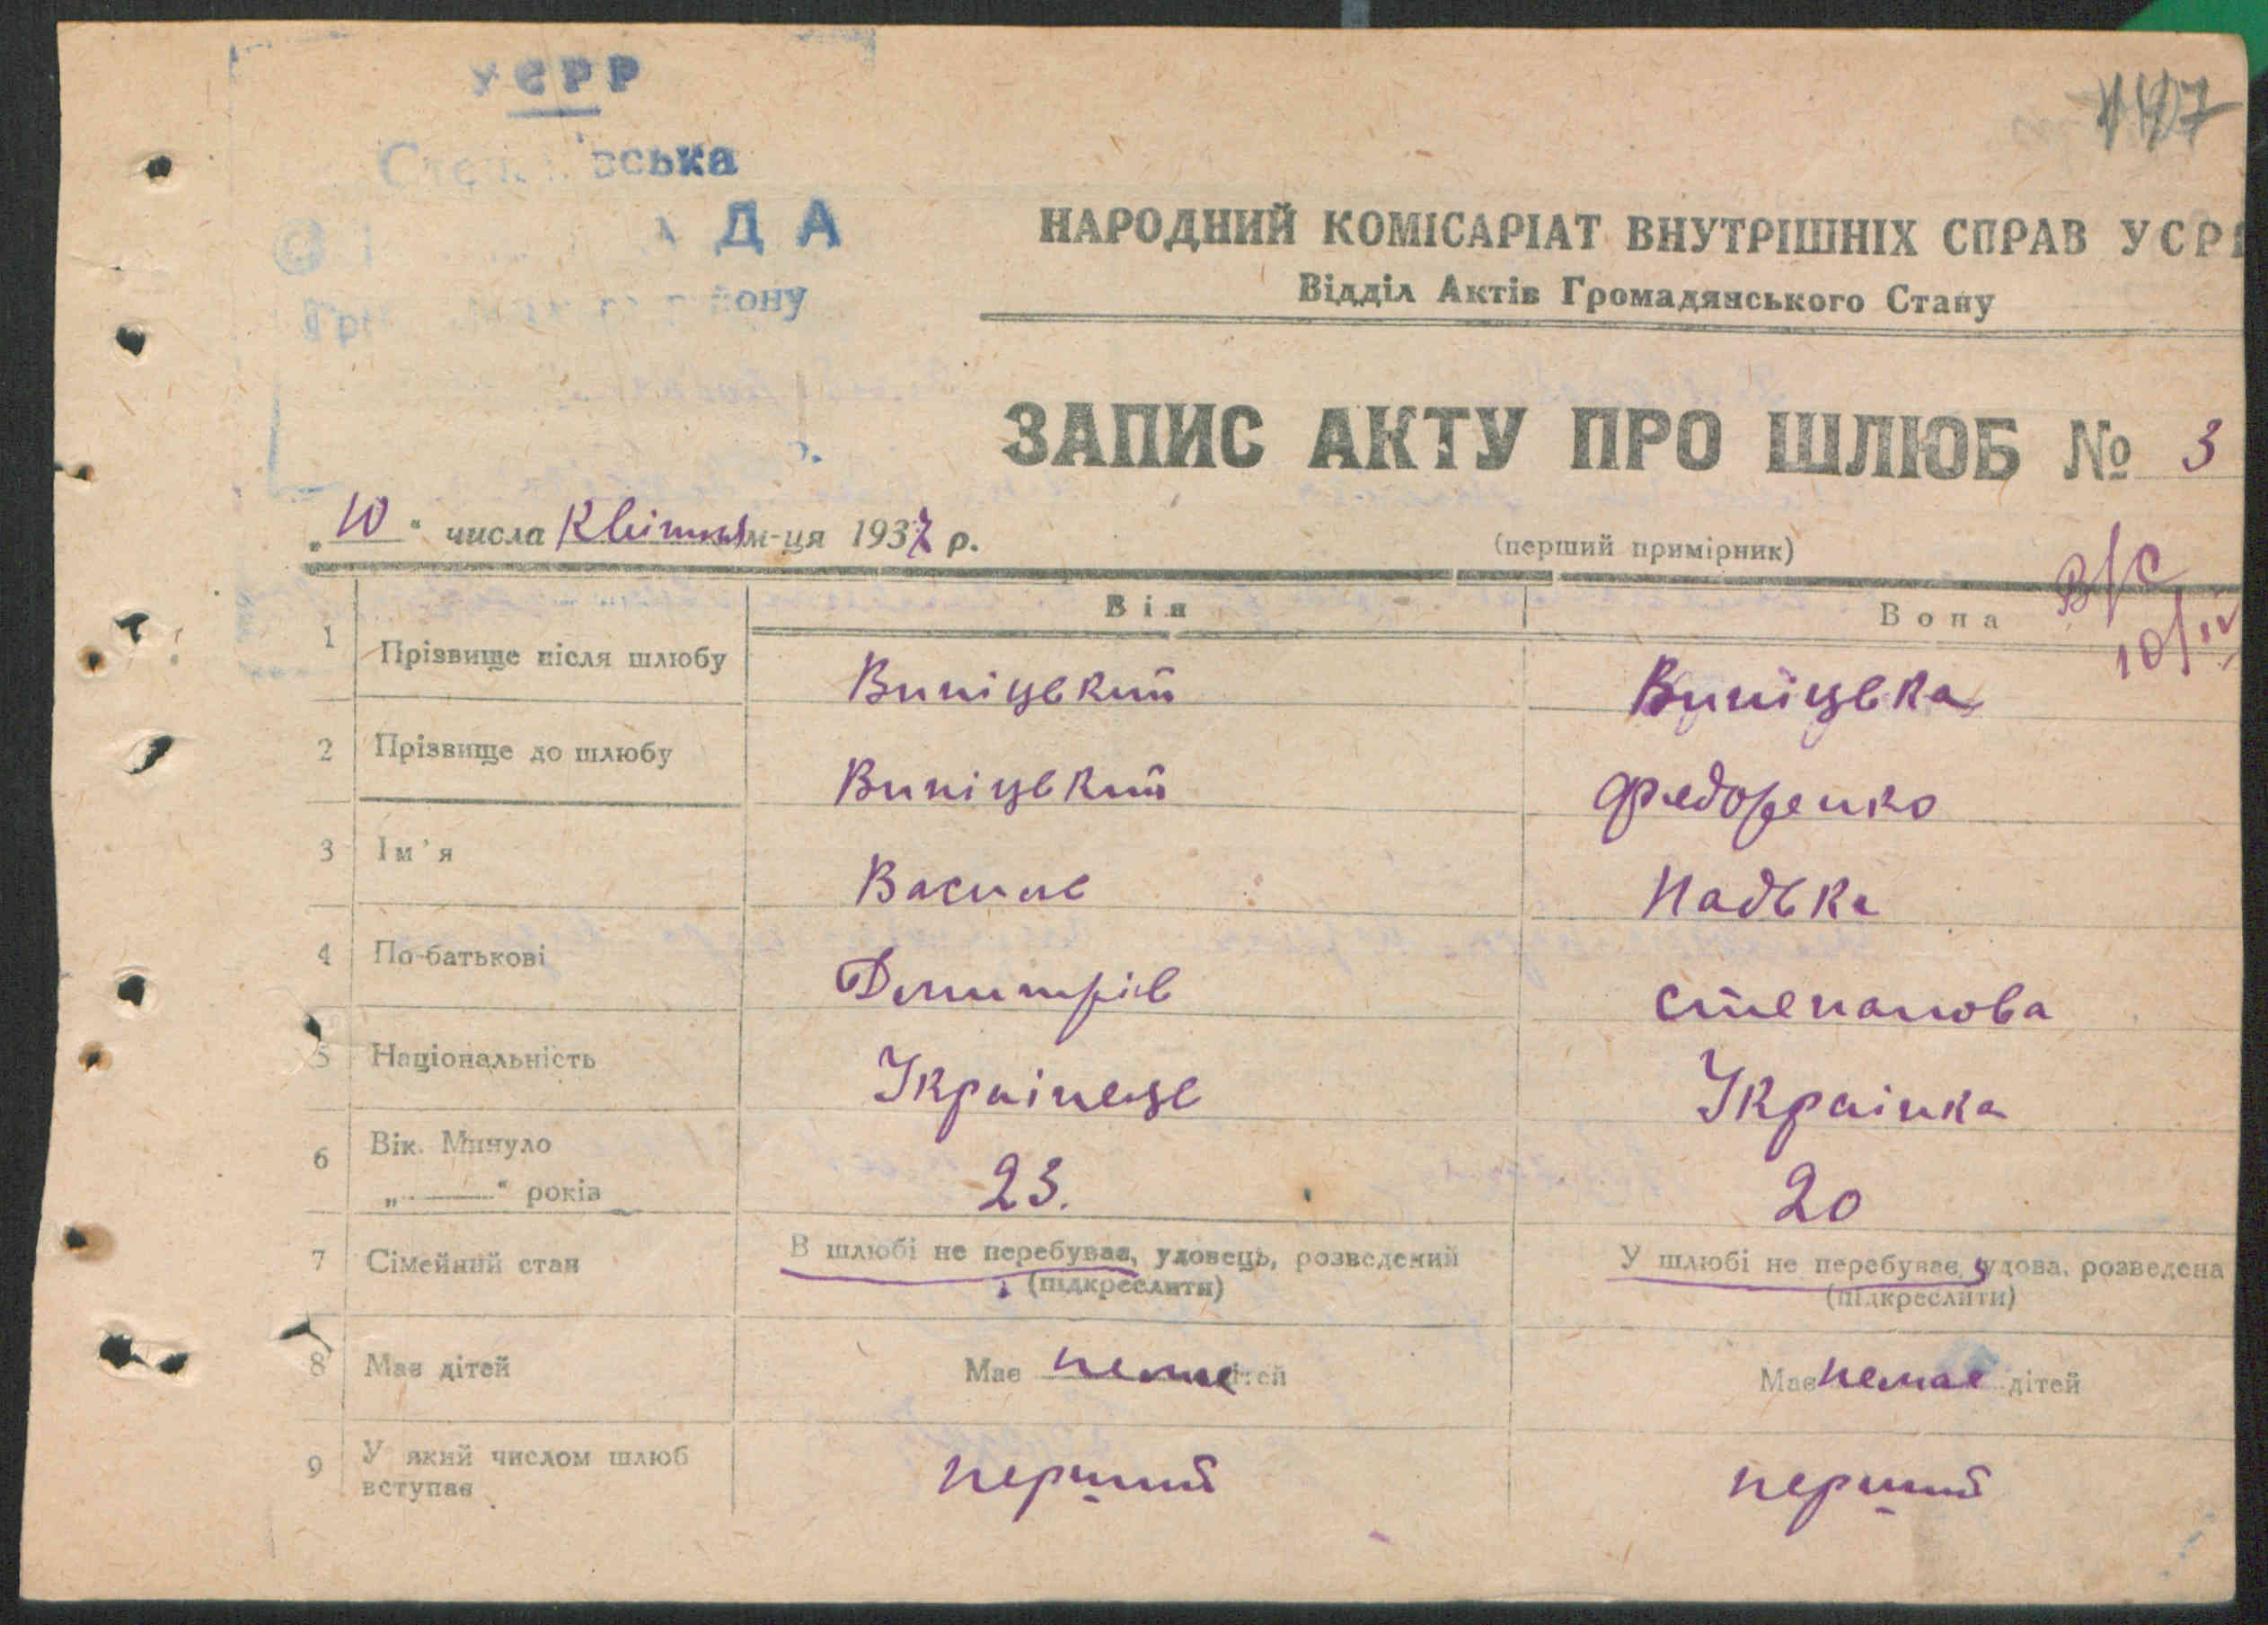 УСРР
ДА
НАРОДНИЙ КОМІСАРІАТ ВНУТРІШНІХ СПРАВ УСРР
Відділ Актів Громадянського Стану
ЗАПИС АКТУ ПРО ШЛЮБ № 3
„10“ числа Квітня м-ця 1937 р.
(перший примірник)
В/С
10/IV
Він Вона
1 Прізвище після шлюбу Виніцький Виніцька
2 Прізвище до шлюбу Виніцький Федоренко
3 Ім'я Василь Надька
4 По-батькові Дмитрів Степанова
5 Національність Українець Українка
6 Вік. Минуло „ “ років 23. 20
7 Сімейний стан В шлюбі не перебуває, удовець, розведений (підкреслити) У шлюбі не перебуває, удова, розведена (підкреслити)
8 Має дітей Має немає дітей Має немає дітей
9 У який числом шлюб вступає перший перший